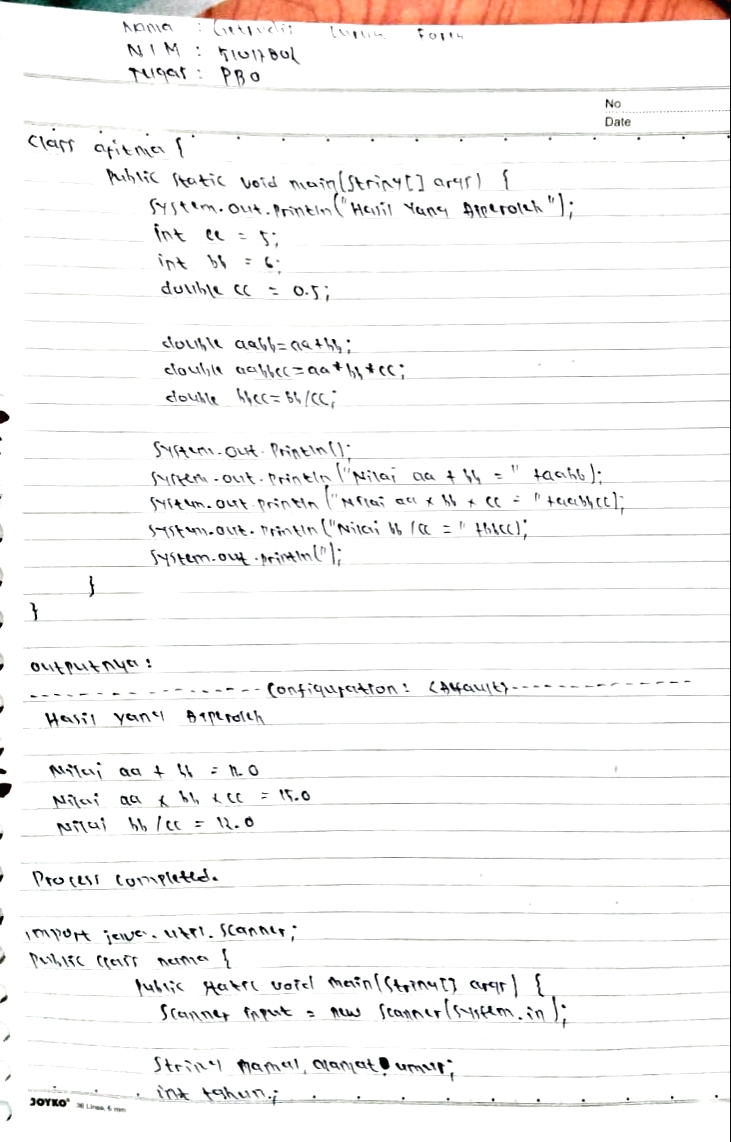 Nama :
NIM :
Tugas : PBO
No
Date
class aritma {
public static void main(String[] args) {
System.out.println("Hasil Yang Diperoleh");
int aa = 5;
int bb = 6;
double cc = 0.5;
double aabb=aa+bb;
double aabbcc=aa*bb*cc;
double bbcc=bb/cc;
System.out.println();
System.out.println("Nilai aa + bb = " +aabb);
System.out.println("Nilai aa x bb x cc = "+aabbcc);
System.out.println("Nilai bb /cc = " +bbcc);
System.out.println(");
}
}
outputnya :
------------------Configuration: <Default>---------------
Hasil yang Diperoleh
Nilai aa + bb = 11.0
Nilai aa x bb x cc = 15.0
Nilai bb /cc = 12.0
Process completed.
import java.util.Scanner;
Public class nama {
Public static void main(String[] args) {
Scanner input = new Scanner(System.in);
String nama1, alamat, umur;
int tahun;
JOYKO 36 Lines, 6 mm